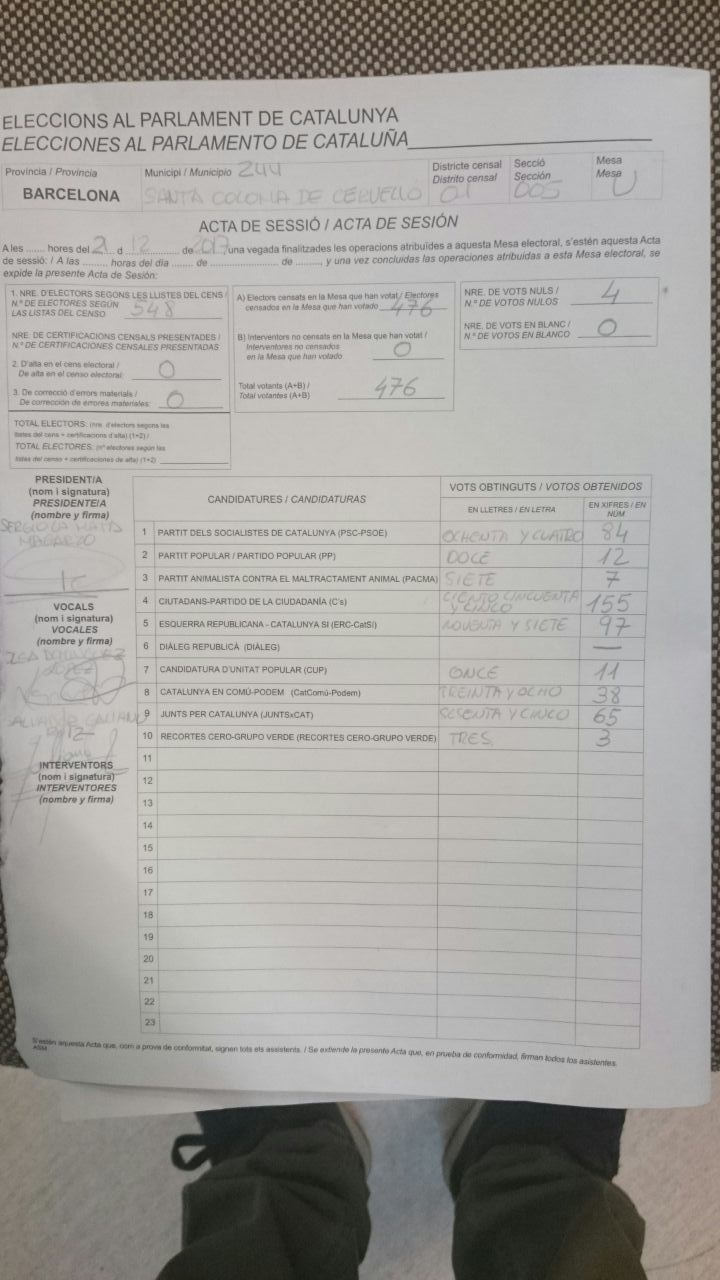 ELECCIONS AL PARLAMENT DE CATALUNYA
ELECCIONES AL PARLAMENTO DE CATALUÑA
Provincia / Provincia
BARCELONA
Municipi / Municipio 244
SANTA COLOMA DE CERVELLÓ
Districte censal
Distrito censal
01
Secció
Sección
005
Mesa
Mesa
U
ACTA DE SESSIÓ / ACTA DE SESIÓN
A les ....... hores del 21 d 12 de 2017 una vegada finalitzades les operacions atribuïdes a aquesta Mesa electoral, s'estén aquesta Acta
de sessió: / A las ........ horas del día ....... de ................. de ........, y una vez concluidas las operaciones atribuidas a esta Mesa electoral, se
expide la presente Acta de Sesión:
1. NRE. D'ELECTORS SEGONS LES LLISTES DEL CENS /
N.º DE ELECTORES SEGÚN
LAS LISTAS DEL CENSO 548
NRE. DE CERTIFICACIONS CENSALS PRESENTADES /
N.º DE CERTIFICACIONES CENSALES PRESENTADAS
2. D'alta en el cens electoral /
De alta en el censo electoral: 0
3. De correcció d'errors materials /
De corrección de errores materiales: 0
TOTAL ELECTORS: (nre. d'electors segons les
llistes del cens + certificacions d'alta) (1+2) /
TOTAL ELECTORES: (nº electores según las
listas del censo + certificaciones de alta) (1+2)
A) Electors censats en la Mesa que han votat / Electores
censados en la Mesa que han votado 476
B) Interventors no censats en la Mesa que han votat /
Interventores no censados
en la Mesa que han votado 0
Total votants (A+B) /
Total votantes (A+B) 476
NRE. DE VOTS NULS /
N.º DE VOTOS NULOS 4
NRE. DE VOTS EN BLANC /
N.º DE VOTOS EN BLANCO 0
PRESIDENT/A
(nom i signatura)
PRESIDENTE/A
(nombre y firma)
SERGIO
VOCALS
(nom i signatura)
VOCALES
(nombre y firma)
SALVADOR
INTERVENTORS
(nom i signatura)
INTERVENTORES
(nombre y firma)
CANDIDATURES / CANDIDATURAS
VOTS OBTINGUTS / VOTOS OBTENIDOS
EN LLETRES / EN LETRA
EN XIFRES / EN
NÚM
1 PARTIT DELS SOCIALISTES DE CATALUNYA (PSC-PSOE) OCHENTA Y CUATRO 84
2 PARTIT POPULAR / PARTIDO POPULAR (PP) DOCE 12
3 PARTIT ANIMALISTA CONTRA EL MALTRACTAMENT ANIMAL (PACMA) SIETE 7
4 CIUTADANS-PARTIDO DE LA CIUDADANÍA (C's) CIENTO CINCUENTA Y CINCO 155
5 ESQUERRA REPUBLICANA - CATALUNYA SÍ (ERC-CatSí) NOVENTA Y SIETE 97
6 DIÀLEG REPUBLICÀ (DIÀLEG) —
7 CANDIDATURA D'UNITAT POPULAR (CUP) ONCE 11
8 CATALUNYA EN COMÚ-PODEM (CatComú-Podem) TREINTA Y OCHO 38
9 JUNTS PER CATALUNYA (JUNTSxCAT) SESENTA Y CINCO 65
10 RECORTES CERO-GRUPO VERDE (RECORTES CERO-GRUPO VERDE) TRES 3
11
12
13
14
15
16
17
18
19
20
21
22
23
S'estén aquesta Acta que, com a prova de conformitat, signen tots els assistents. / Se extiende la presente Acta que, en prueba de conformidad, firman todos los asistentes.